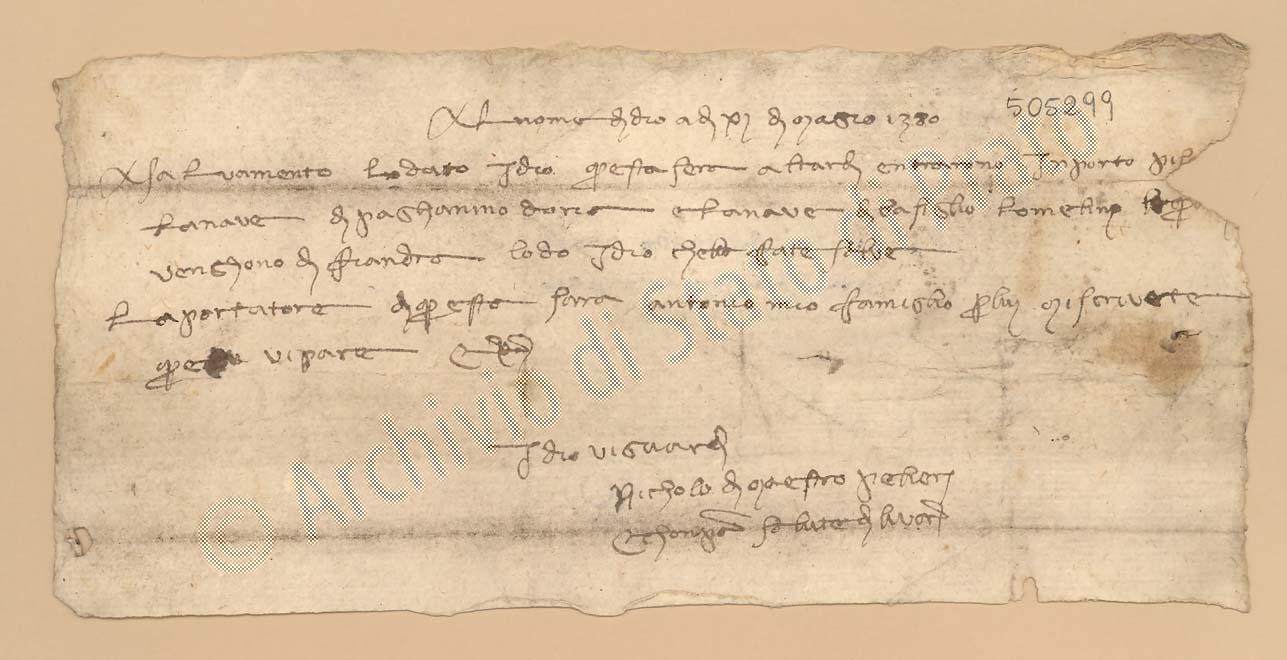 505299
Al nome di dio a di xi di magio 1380
A salvamento lodato Idio questa sera a ttardi entrarono in porto pis
la nave di paghanino doria e la nave di bafiglio lomelini
venghono di ffiandra lodo Idio che ll fate salve
La portatore di questa sara antonio mio ffamiglio per lui mi scrivete
que vi pare
Idio vi guardi
Nicholo di maestro
chonpa salute di livorn
© Archivio di Stato di Prato